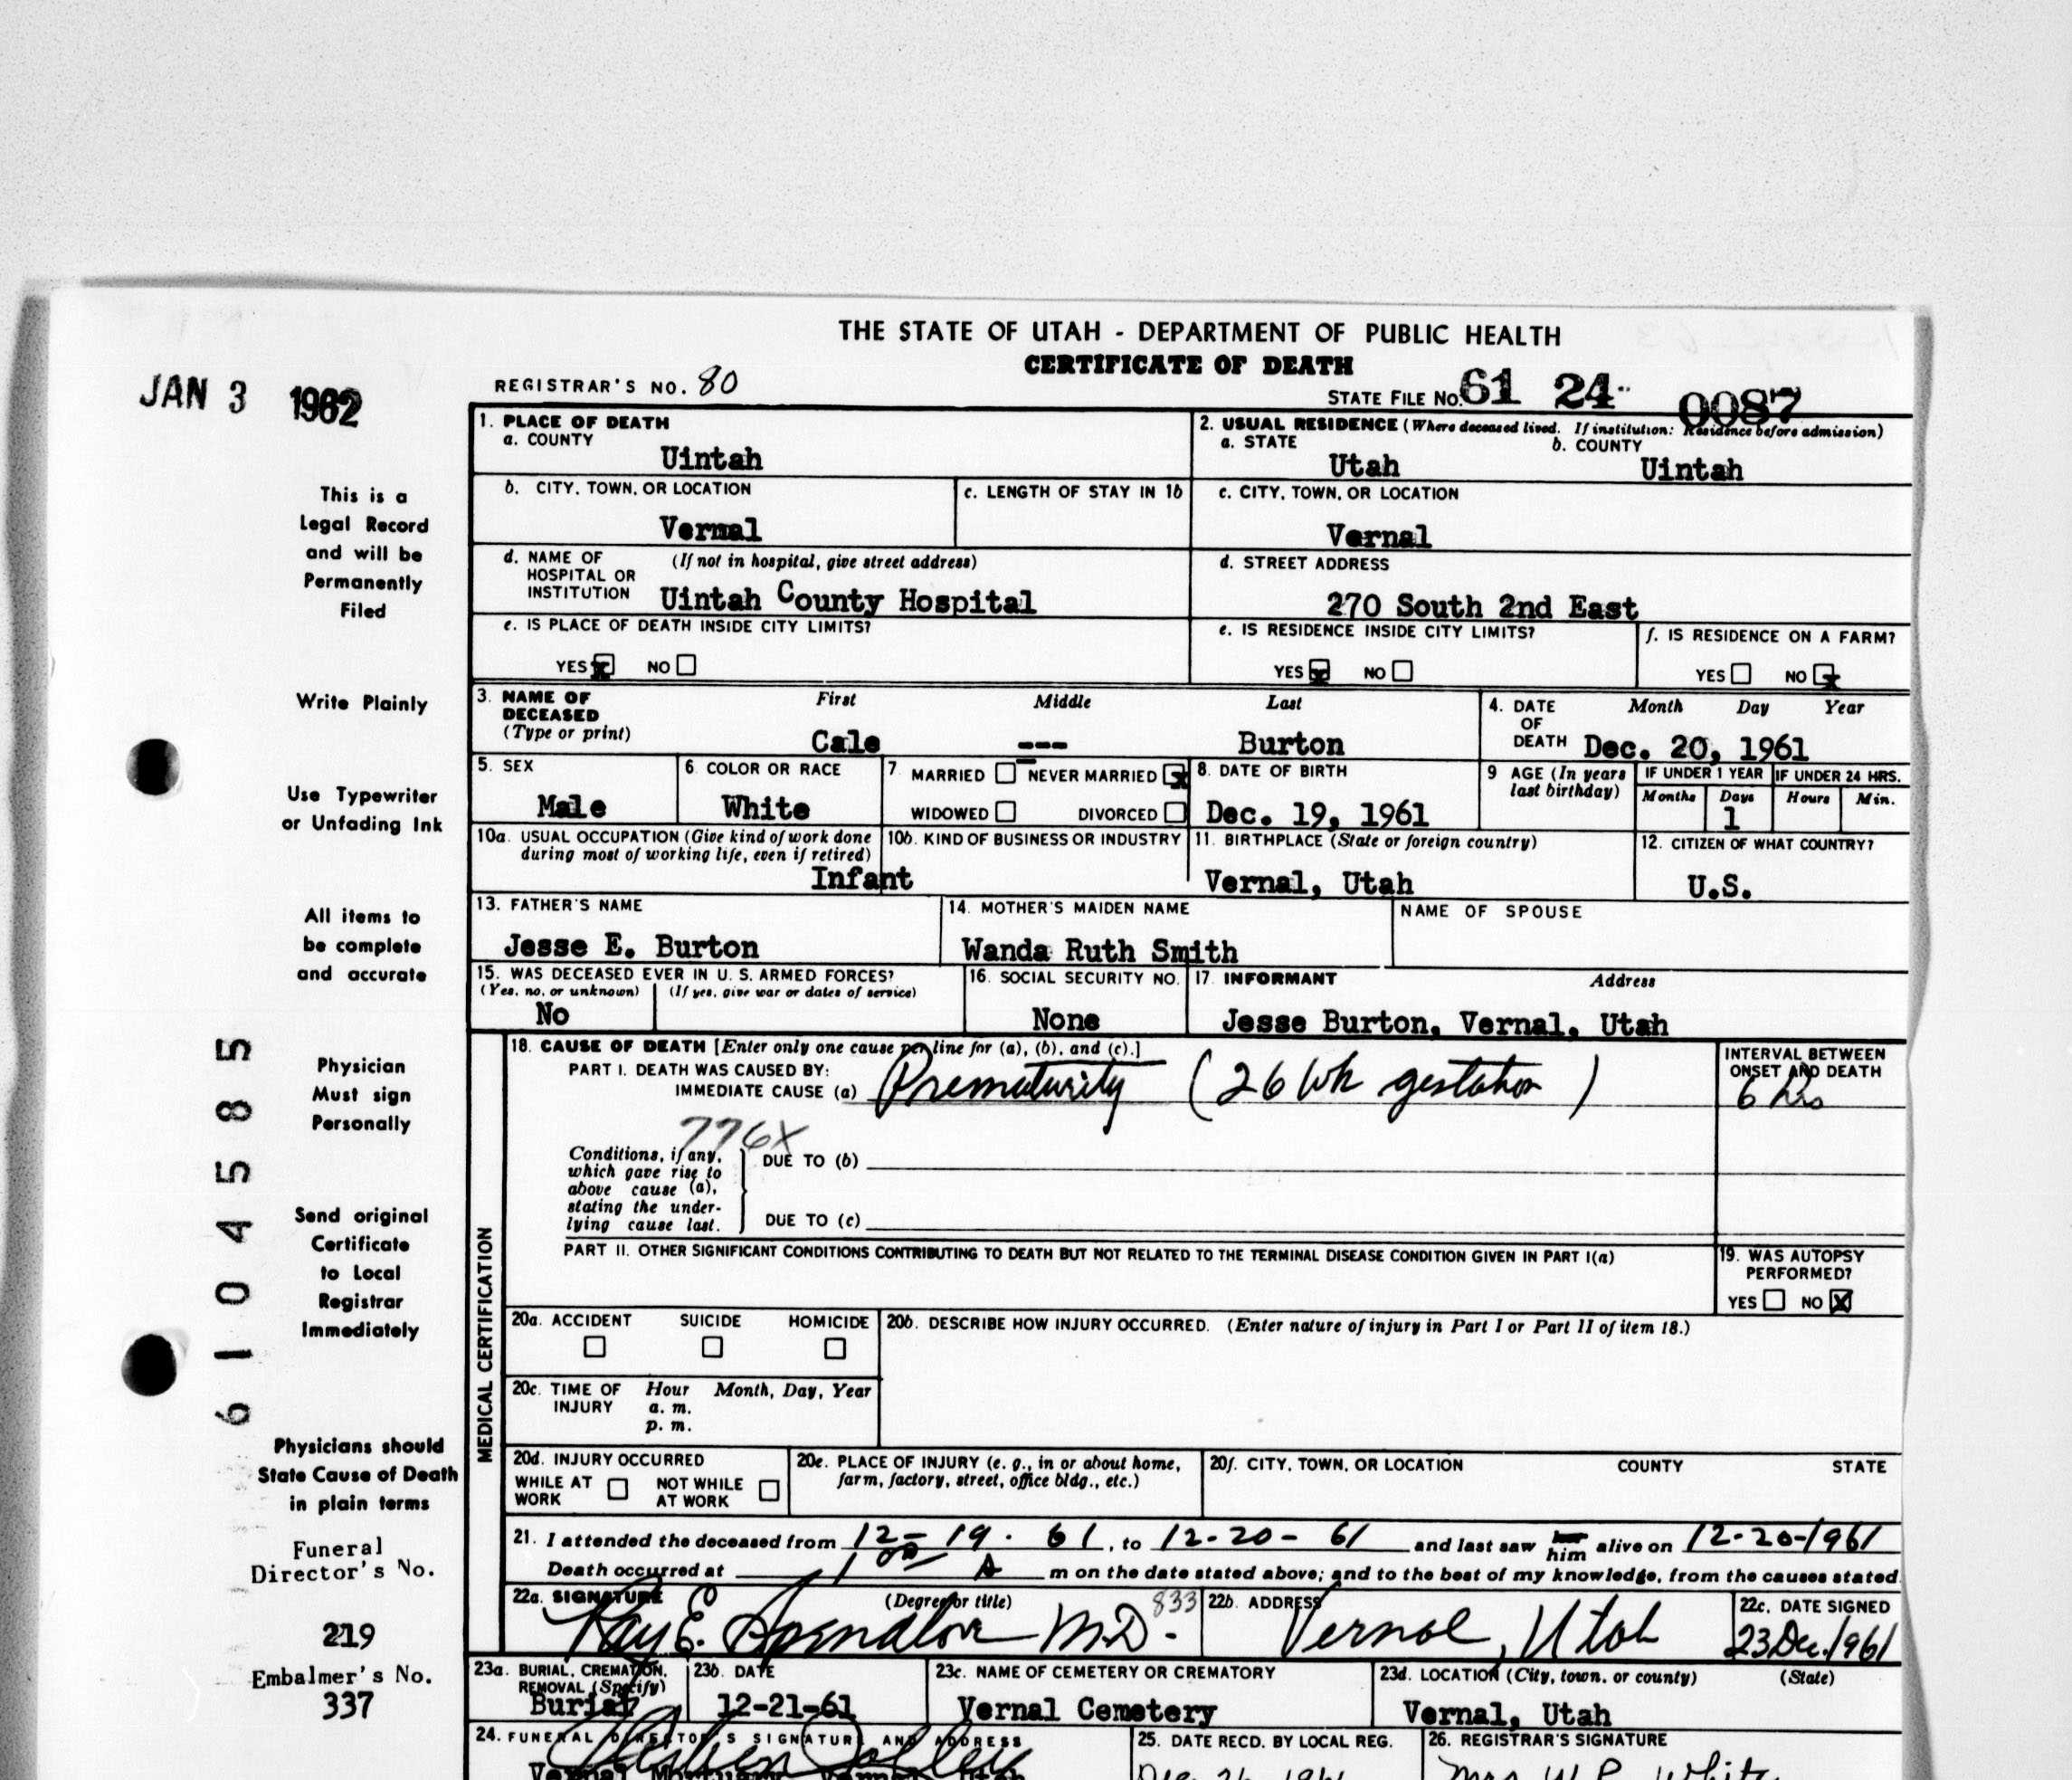 THE STATE OF UTAH - DEPARTMENT OF PUBLIC HEALTH
CERTIFICATE OF DEATH
JAN 3 1962
REGISTRAR'S NO. 80
STATE FILE NO. 61 24 0087
1. PLACE OF DEATH
a. COUNTY
Uintah
2. USUAL RESIDENCE (Where deceased lived. If institution: Residence before admission)
a. STATE b. COUNTY
Utah Uintah
b. CITY, TOWN, OR LOCATION
Vernal
c. LENGTH OF STAY IN 1b
c. CITY, TOWN, OR LOCATION
Vernal
d. NAME OF (If not in hospital, give street address)
HOSPITAL OR
INSTITUTION Uintah County Hospital
d. STREET ADDRESS
270 South 2nd East
e. IS PLACE OF DEATH INSIDE CITY LIMITS?
YES x NO
e. IS RESIDENCE INSIDE CITY LIMITS?
YES x NO
f. IS RESIDENCE ON A FARM?
YES NO x
3. NAME OF First Middle Last
DECEASED
(Type or print) Cale --- Burton
4. DATE Month Day Year
OF
DEATH Dec. 20, 1961
5. SEX
Male
6. COLOR OR RACE
White
7. MARRIED NEVER MARRIED x
WIDOWED DIVORCED
8. DATE OF BIRTH
Dec. 19, 1961
9 AGE (In years
last birthday)
IF UNDER 1 YEAR IF UNDER 24 HRS.
Months Days Hours Min.
1
10a. USUAL OCCUPATION (Give kind of work done
during most of working life, even if retired)
Infant
10b. KIND OF BUSINESS OR INDUSTRY
11. BIRTHPLACE (State or foreign country)
Vernal, Utah
12. CITIZEN OF WHAT COUNTRY?
U.S.
13. FATHER'S NAME
Jesse E. Burton
14. MOTHER'S MAIDEN NAME
Wanda Ruth Smith
NAME OF SPOUSE
15. WAS DECEASED EVER IN U. S. ARMED FORCES?
(Yes, no, or unknown) (If yes, give war or dates of service)
No
16. SOCIAL SECURITY NO.
None
17. INFORMANT Address
Jesse Burton, Vernal, Utah
MEDICAL CERTIFICATION
18. CAUSE OF DEATH [Enter only one cause per line for (a), (b), and (c).]
PART I. DEATH WAS CAUSED BY:
IMMEDIATE CAUSE (a) Prematurity (26 Wk gestation)
INTERVAL BETWEEN
ONSET AND DEATH
6 hrs
776X
Conditions, if any,
which gave rise to
above cause (a),
stating the under-
lying cause last.
DUE TO (b)
DUE TO (c)
PART II. OTHER SIGNIFICANT CONDITIONS CONTRIBUTING TO DEATH BUT NOT RELATED TO THE TERMINAL DISEASE CONDITION GIVEN IN PART I(a)
19. WAS AUTOPSY
PERFORMED?
YES NO X
20a. ACCIDENT SUICIDE HOMICIDE
20b. DESCRIBE HOW INJURY OCCURRED. (Enter nature of injury in Part I or Part II of item 18.)
20c. TIME OF Hour Month, Day, Year
INJURY a. m.
p. m.
20d. INJURY OCCURRED
WHILE AT WORK NOT WHILE AT WORK
20e. PLACE OF INJURY (e. g., in or about home,
farm, factory, street, office bldg., etc.)
20f. CITY, TOWN, OR LOCATION COUNTY STATE
21. I attended the deceased from 12-19-61, to 12-20-61 and last saw him alive on 12-20-1961
Death occurred at 1 00 A m on the date stated above; and to the best of my knowledge, from the causes stated.
22a. SIGNATURE (Degree or title) 833
Ray E. Spendlove M.D.
22b. ADDRESS
Vernal, Utah
22c. DATE SIGNED
23 Dec. 1961
23a. BURIAL, CREMATION,
REMOVAL (Specify)
Burial
23b. DATE
12-21-61
23c. NAME OF CEMETERY OR CREMATORY
Vernal Cemetery
23d. LOCATION (City, town, or county) (State)
Vernal, Utah
24. FUNERAL DIRECTOR'S SIGNATURE AND ADDRESS
Vernal Mortuary Vernal, Utah
25. DATE RECD. BY LOCAL REG.
Dec 26, 1961
26. REGISTRAR'S SIGNATURE
Mrs W. P. White
This is a
Legal Record
and will be
Permanently
Filed
Write Plainly
Use Typewriter
or Unfading Ink
All items to
be complete
and accurate
Physician
Must sign
Personally
Send original
Certificate
to Local
Registrar
Immediately
Physicians should
State Cause of Death
in plain terms
Funeral
Director's No.
219
Embalmer's No.
337
6104585